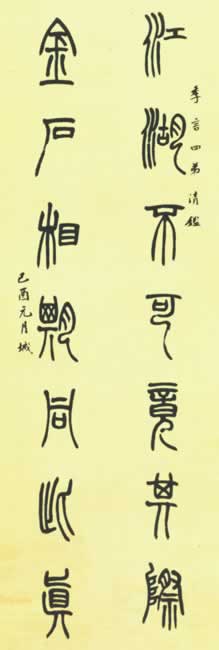 江湖不可竟其際
季言四弟 清鑑
金石相期同此眞
己酉元月 城